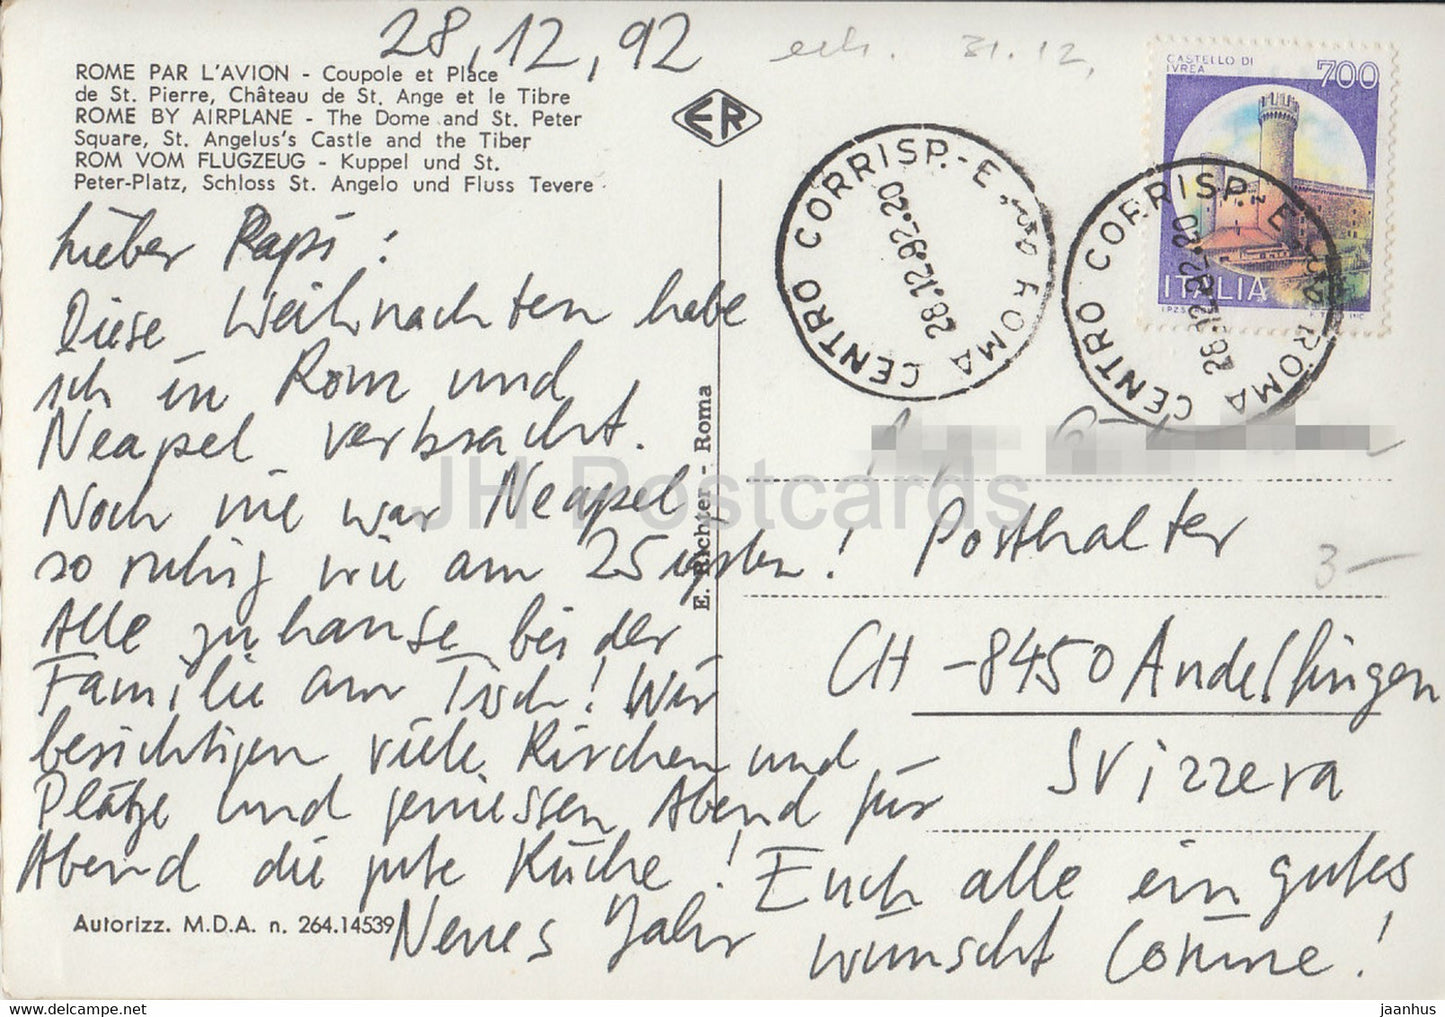 28.12.92
erh. 31.12.
ROME PAR L'AVION - Coupole et Place
de St. Pierre, Château de St. Ange et le Tibre
ROME BY AIRPLANE - The Dome and St. Peter
Square, St. Angelus's Castle and the Tiber
ROM VOM FLUGZEUG - Kuppel und St.
Peter-Platz, Schloss St. Angelo und Fluss Tevere
ER
CASTELLO DI
IVREA
700
ITALIA
CENTRO CORRISP.-E ROMA
28.12.92.-20
CENTRO CORRISP.-E ROMA
28.12.92.-20
Lieber Papi:
Diese Weihnachten habe
ich in Rom und
Neapel verbracht.
Noch nie war Neapel
so ruhig wie am 25igsten!
Alle zuhause bei der
Familie am Tisch! Wir
besichtigen viele Kirchen und
Plätze und geniessen Abend für
Abend die gute Küche! Euch alle ein gutes
Neues Jahr wünscht Corinne!
E. Richter - Roma
Posthalter
3-
CH-8450 Andelfingen
Svizzera
Autorizz. M.D.A. n. 264.14539
JH Postcards
jaanhus
https://www.jh-postcards.com/